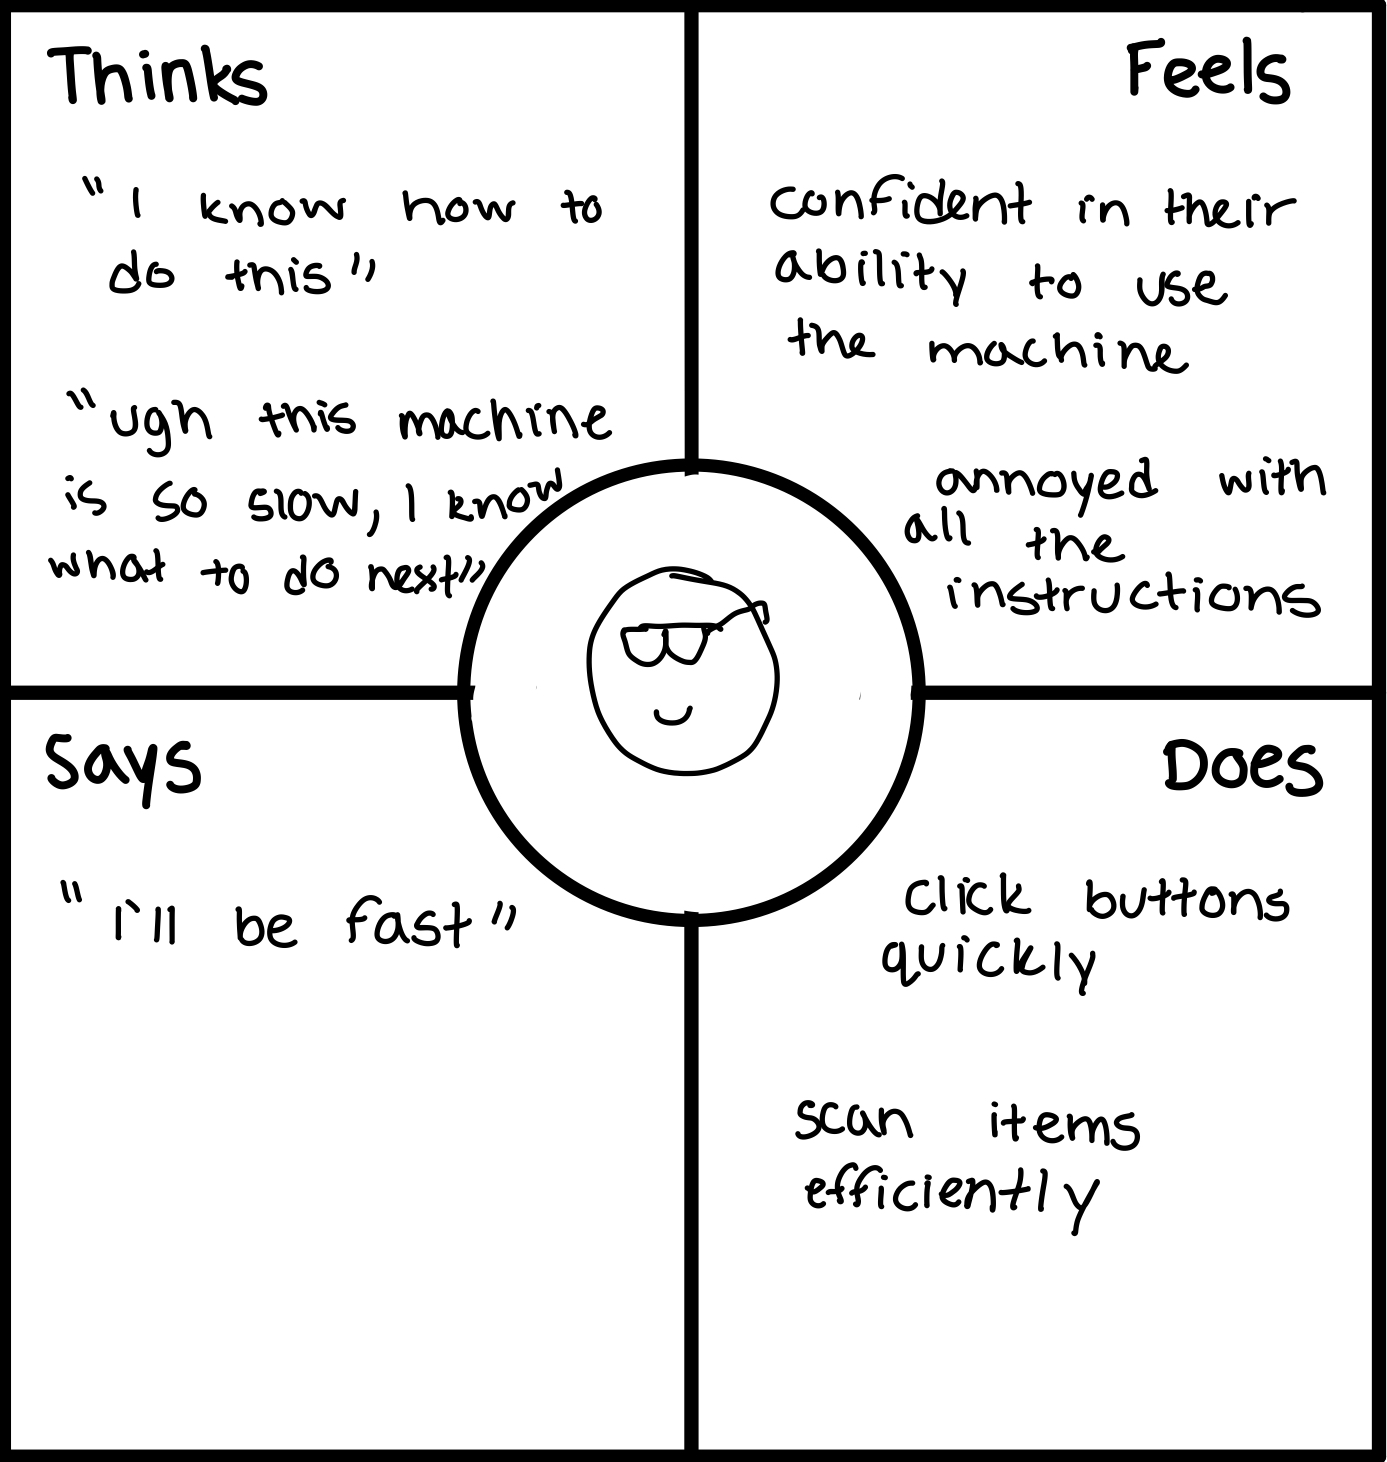 Thinks
"I know how to
do this"
"ugh this machine
is so slow, I know
what to do next"
Feels
confident in their
ability to use
the machine
annoyed with
all the
instructions
Says
"I'll be fast"
Does
click buttons
quickly
scan items
efficiently